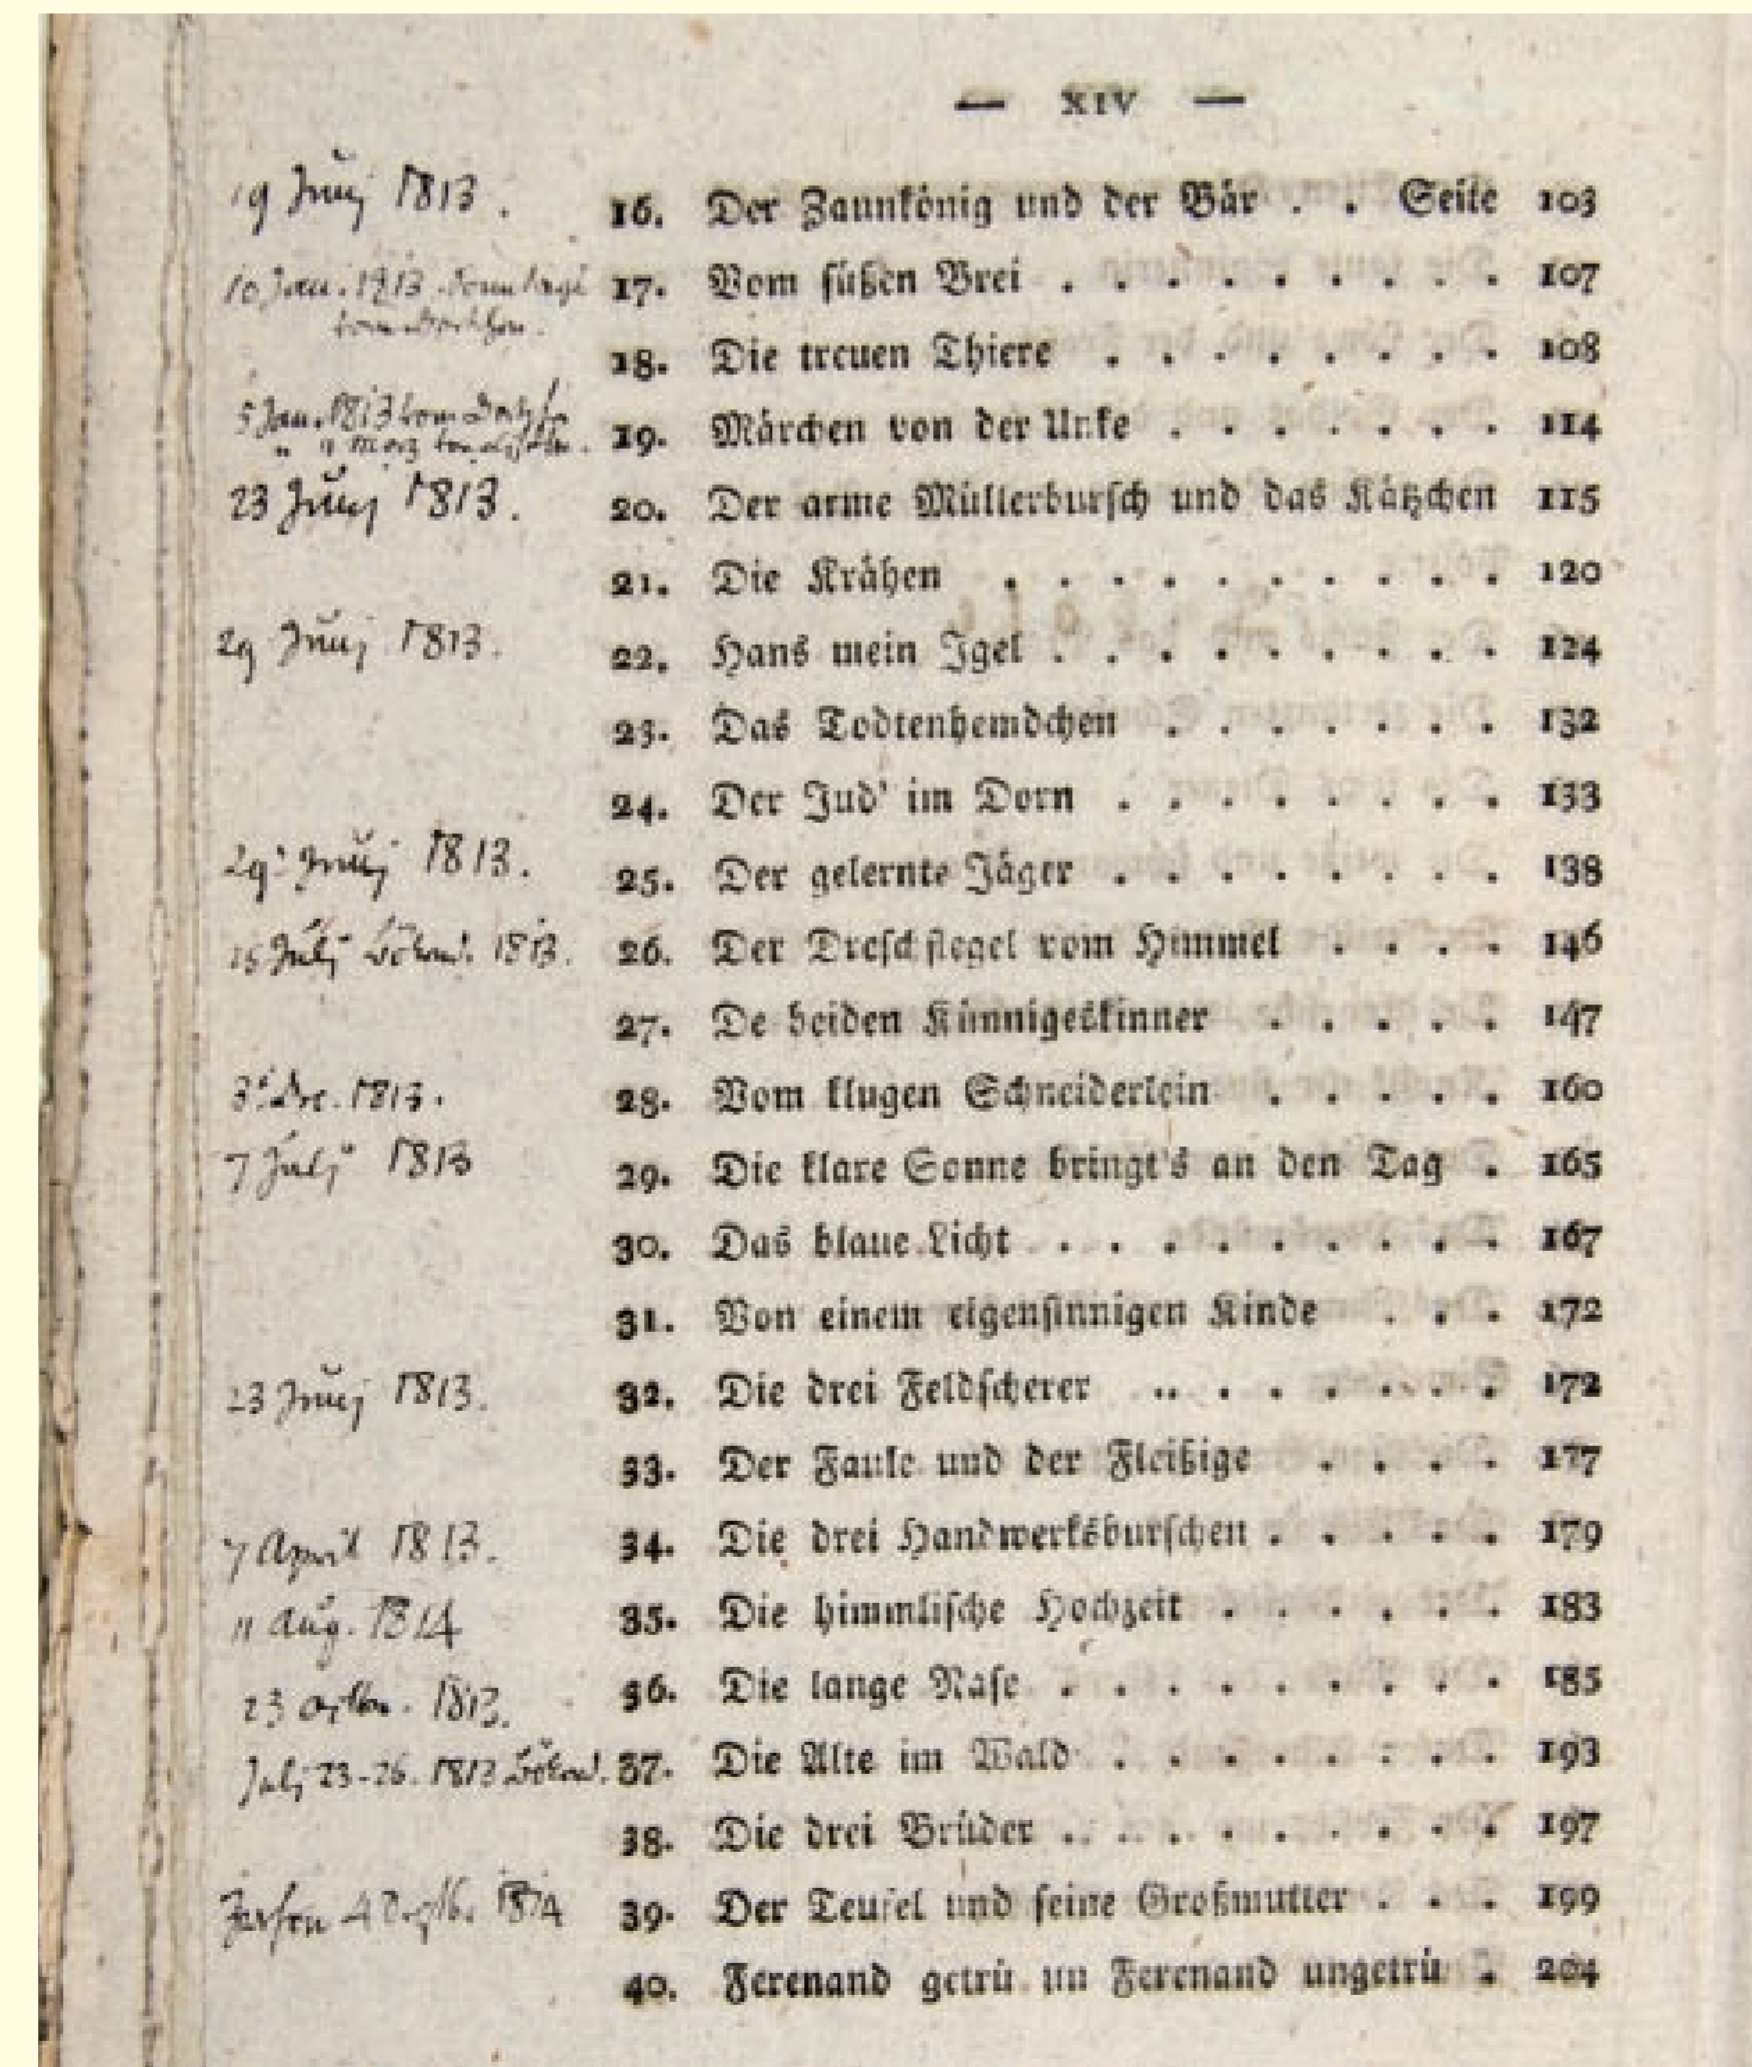 — XIV —
19 Junij 1813. 16. Der Zaunkönig und der Bär . . Seite 103
10 Jan. 1813 17. Vom süßen Brei . . . . . . . . . 107
18. Die treuen Thiere . . . . . . . . 108
5 Jan. 1813 vom
19. Märchen von der Unke . . . . . . . 114
23 Junij 1813. 20. Der arme Müllerbursch und das Kätzchen 115
21. Die Krähen . . . . . . . . . . 120
29 Junij 1813. 22. Hans mein Igel . . . . . . . . . 124
23. Das Todtenhemdchen . . . . . . . 132
24. Der Jud' im Dorn . . . . . . . . 133
29. Junij 1813. 25. Der gelernte Jäger . . . . . . . . 138
15 Julj Bökend. 1813. 26. Der Dreschflegel vom Himmel . . . . 146
27. De beiden Künnigeskinner . . . . . 147
1813. 28. Vom klugen Schneiderlein . . . . . 160
7 Julj 1813 29. Die klare Sonne bringt's an den Tag . 165
30. Das blaue Licht . . . . . . . . . 167
31. Von einem eigensinnigen Kinde . . . 172
23 Junij 1813. 32. Die drei Feldscherer . . . . . . . . 172
33. Der Faule und der Fleißige . . . . 177
7 April 1813. 34. Die drei Handwerksburschen . . . . . 179
11 Aug. 1814 35. Die himmlische Hochzeit . . . . . . 183
23 1813. 36. Die lange Nase . . . . . . . . . 185
Julj 23-26. 1813 Bökend. 37. Die Alte im Wald . . . . . . . . 193
38. Die drei Brüder . . . . . . . . . 197
1814 39. Der Teufel und seine Großmutter . . . 199
40. Ferenand getrü un Ferenand ungetrü . 204